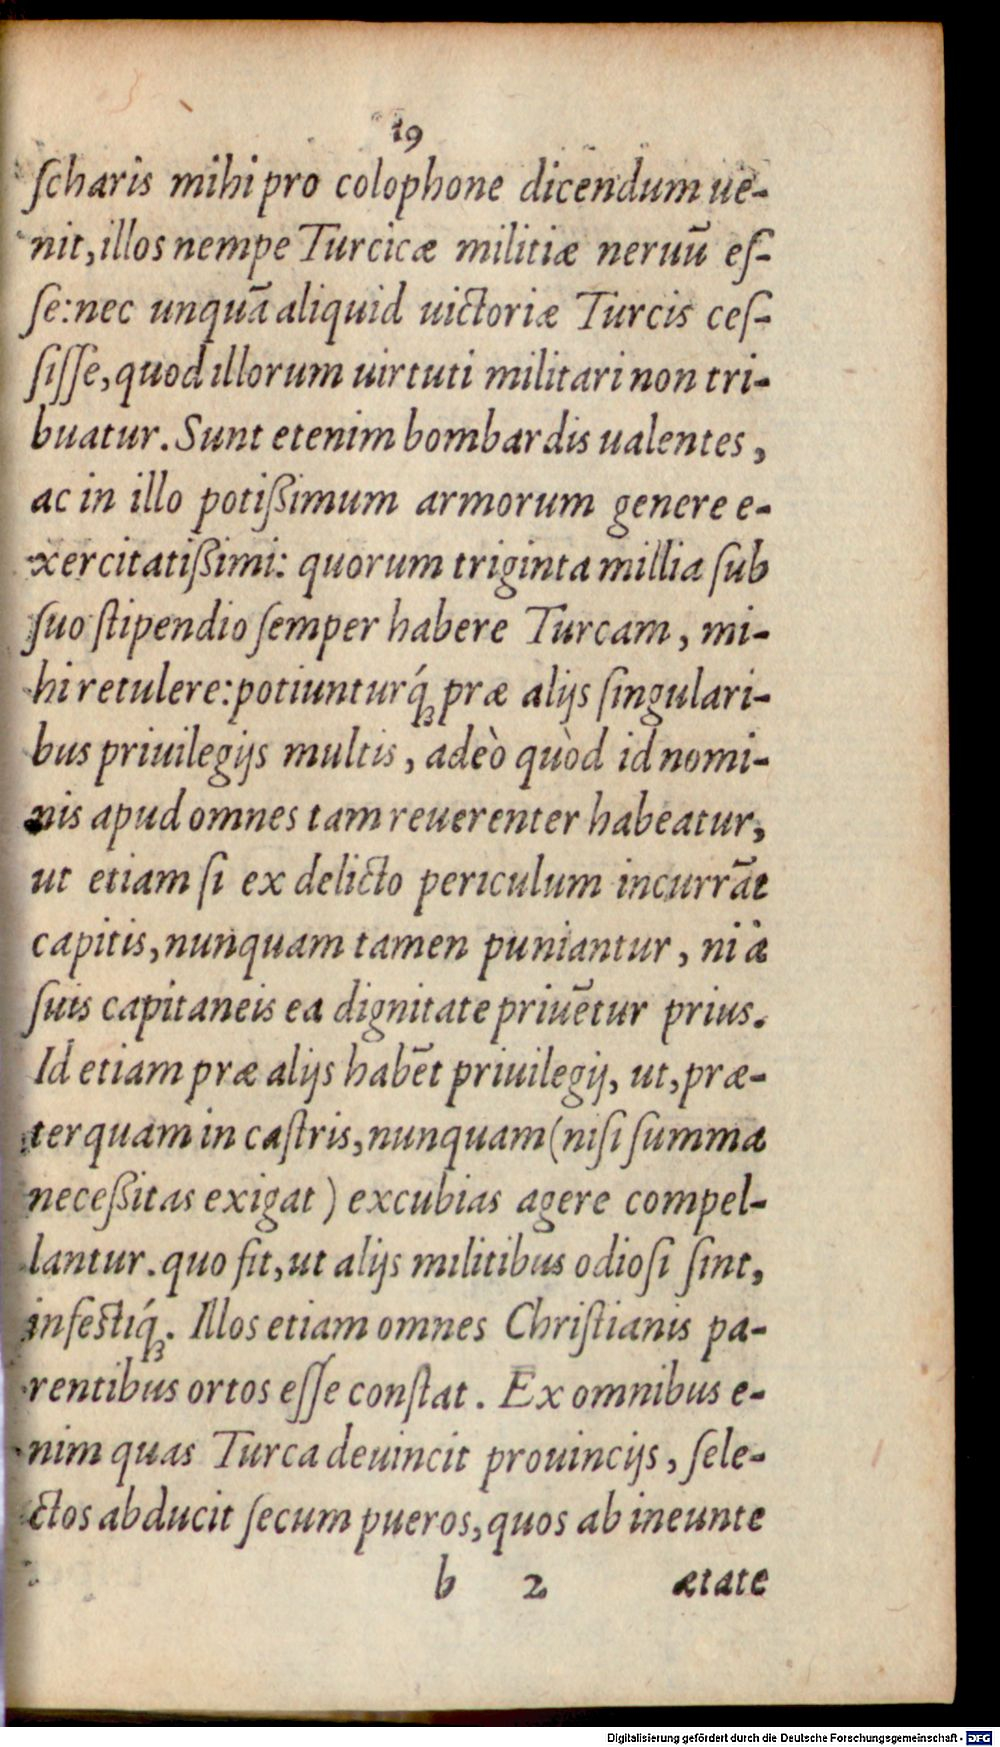 19
ſcharis mihi pro colophone dicendum ue-
nit, illos nempe Turcicæ militiæ neruū eſ-
ſe: nec unquā aliquid uictoriæ Turcis ceſ-
ſiſſe, quod illorum uirtuti militari non tri-
buatur. Sunt etenim bombardis ualentes,
ac in illo potißimum armorum genere e-
xercitatißimi: quorum triginta millia ſub
ſuo ſtipendio ſemper habere Turcam, mi-
hi retulere: potiunturq́ꝫ præ alijs ſingulari-
bus priuilegijs multis, adeò quòd id nomi-
nis apud omnes tam reuerenter habeatur,
ut etiam ſi ex delicto periculum incurrāt
capitis, nunquam tamen puniantur, ni à
ſuis capitaneis ea dignitate priuētur prius.
Id etiam præ alijs habēt priuilegij, ut, præ-
terquam in caſtris, nunquam (niſi ſumma
neceßitas exigat) excubias agere compel-
lantur. quo fit, ut alijs militibus odioſi ſint,
infeſtiq́ꝫ. Illos etiam omnes Chriſtianis pa-
rentibus ortos eſſe conſtat. Ex omnibus e-
nim quas Turca deuincit prouincijs, ſele-
ctos abducit ſecum pueros, quos ab ineunte
b 2 ætate
Digitalisierung gefördert durch die Deutsche Forschungsgemeinschaft - DFG